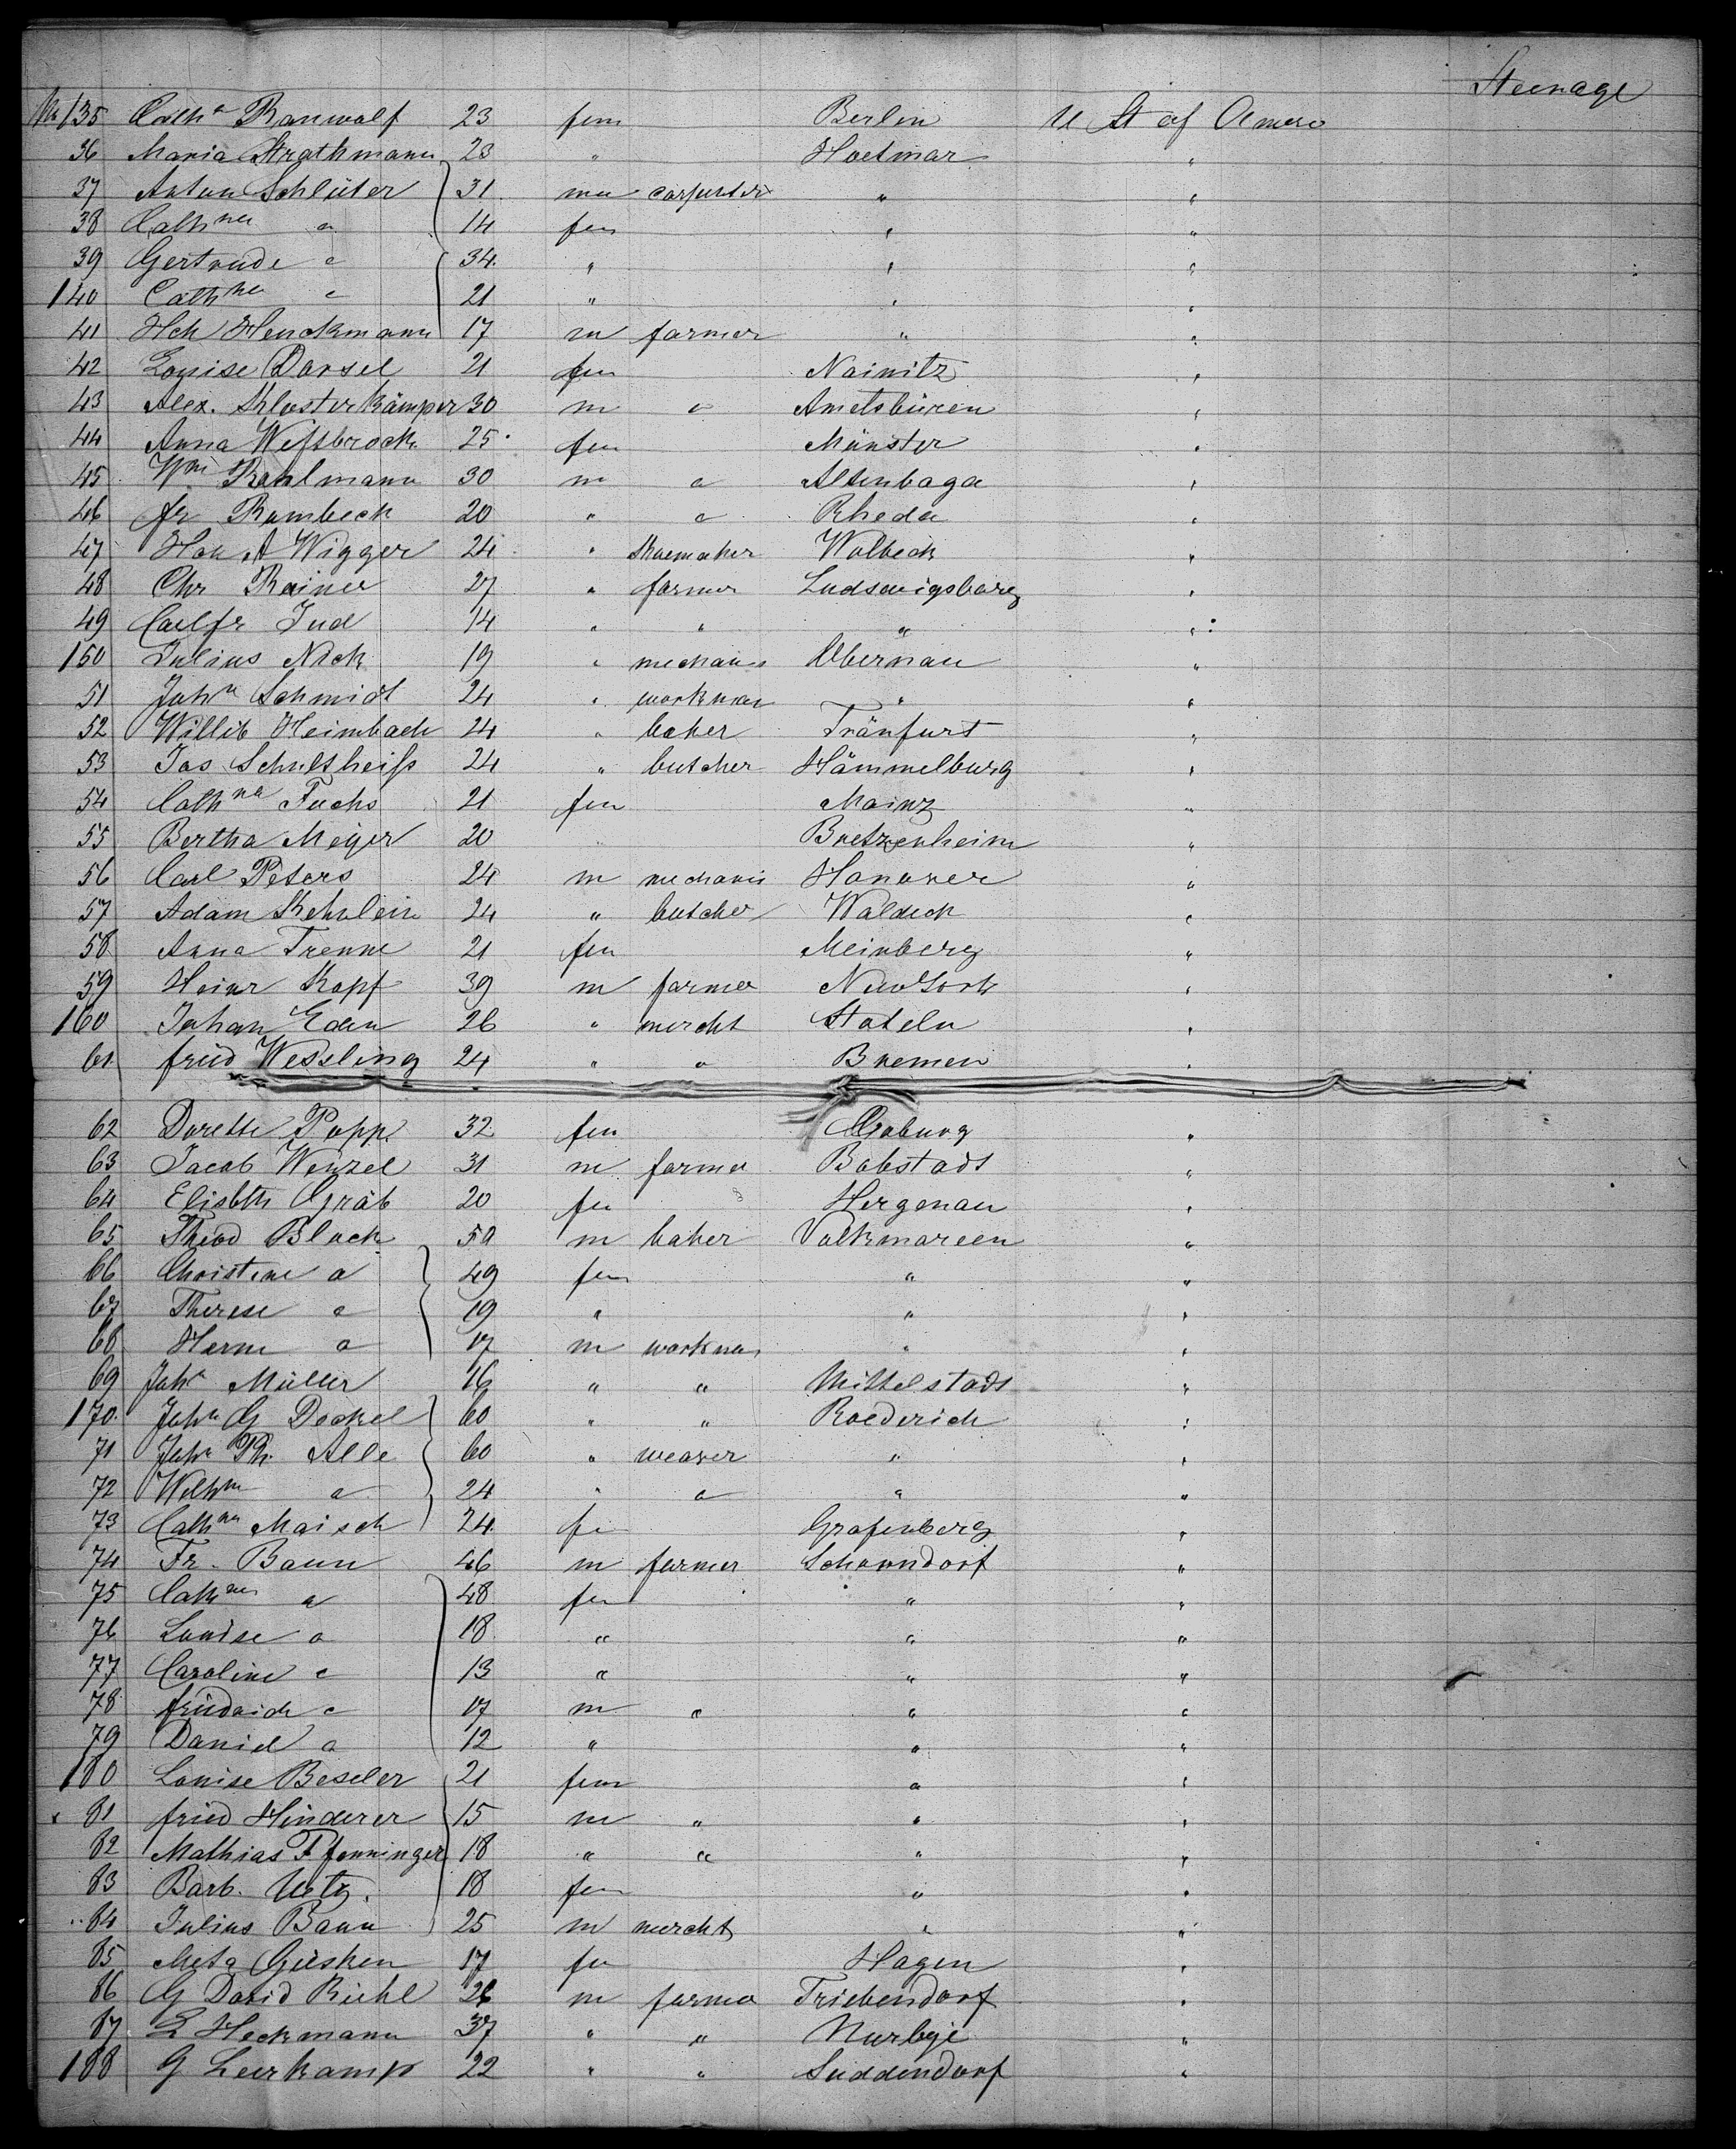 Steerage
No 135 Cath a Ranwolf 23 fem Berlin U St of Americ
36 Maria Strathmann 23 " Hoetmar "
37 Anton Schlüter 31 ma carpenter " "
38 Cath na " 14 fem " "
39 Gertrude " 34 " " "
140 Cath na " 21 " " "
41 Hch Henckmann 17 m farmer " "
42 Louise Dorsel 21 fem Nainitz "
43 Alex. Klosterkämper 30 m " Amelsbüren "
44 Anna Wessbrock 25 fem Münster "
45 Wm Pohlmann 30 m " Altenbaga "
46 fr Rumbeck 20 " " Rheda "
47 A Wigger 24 " shoemaker Wolbeck "
48 Chr Rainer 27 " farmer Ludswigsburg "
49 Carl fr Jud 14 " " " "
150 Julius Nick 19 " mechanis Obernau "
51 Joh n Schmidt 24 " workman " "
52 Willib Heimbach 24 " baker Fränfurt "
53 Jos Schultheiss 24 " butcher Hämmelburg "
54 Cath na Fuchs 21 fem Mainz "
55 Bertha Meijer 20 " Bretzenheim "
56 Carl Peters 24 m mechanis Hanover "
57 Adam Kehrlein 24 " butcher Waldeck "
58 Anna Trenne 21 fem Meinberg "
59 Heinr Kopf 39 m farmer New York "
160 Johan Eden 26 " mercht Stoteln "
61 fried Wessling 24 " " Bremen "
62 Dorette Popp 32 fem Coburg "
63 Jacob Wenzel 31 m farmer Bobstadt "
64 Elisbth Gräb 20 fem Hergenau "
65 Theod Block 50 m baker Volkmareen "
66 Christine " 49 fem " "
67 Therese " 19 " " "
68 Herm " 17 m workman " "
69 Joh n Müller 16 " " Mittelstadt "
170 Joh n G Dockel 60 " " Roederich "
71 Joh n Ph. Alle 60 " weaver " "
72 Wilh m " 24 " " " "
73 Cath na Maisch 24 fe Grafenberg "
74 Fr. Baun 46 m farmer Schorndorf "
75 Cath na " 48 fem " "
76 Louise " 18 " " "
77 Caroline " 13 " " "
78 friedrich " 17 m " " "
79 Daniel " 12 " " "
180 Louise Beseler 21 fem " "
81 fried Hinderer 15 m " " "
82 Mathias Pfenninger 18 " " " "
83 Barb. Metz. 18 fem " "
84 Julius Baun 25 m mercht " "
85 Meta Giesken 17 fem Hagen "
86 G David Riehl 26 m farmer Triebendorf "
87 Heckmann 37 " " "
188 G Leerkamp 22 " " Suddendorf "